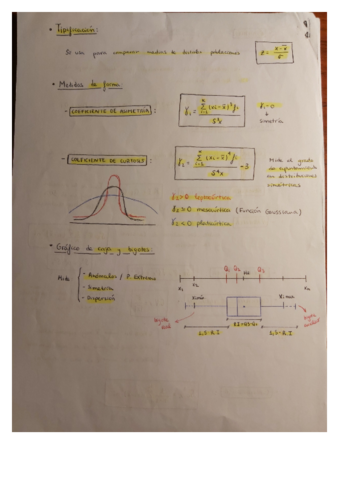 • Tipificación:
Se usa para comparar medidas de distintas poblaciones z = x - x̄ / s
• Medidas de forma
- COEFICIENTE DE ASIMETRÍA: γ₁ = Σ (xi - x̄)³ fi / s³x γ₁ = 0 simetría
- COEFICIENTE DE CURTOSIS: γ₂ = Σ (xi - x̄)⁴ fi / s⁴x - 3 Mide el grado
de apuntamiento
en distribuciones
simétricas
γ₂ > 0 leptocúrtica
γ₂ = 0 mesocúrtica (Función Gaussiana)
γ₂ < 0 platicúrtica
• Gráfico de caja y bigotes
Mide - Anómalos / P. Extremos
- Simetría
- Dispersión
Q₁ Q₂ Q₃
x₁
xmin xi max
bigote bigote
1,5·R.I 1,5·R.I